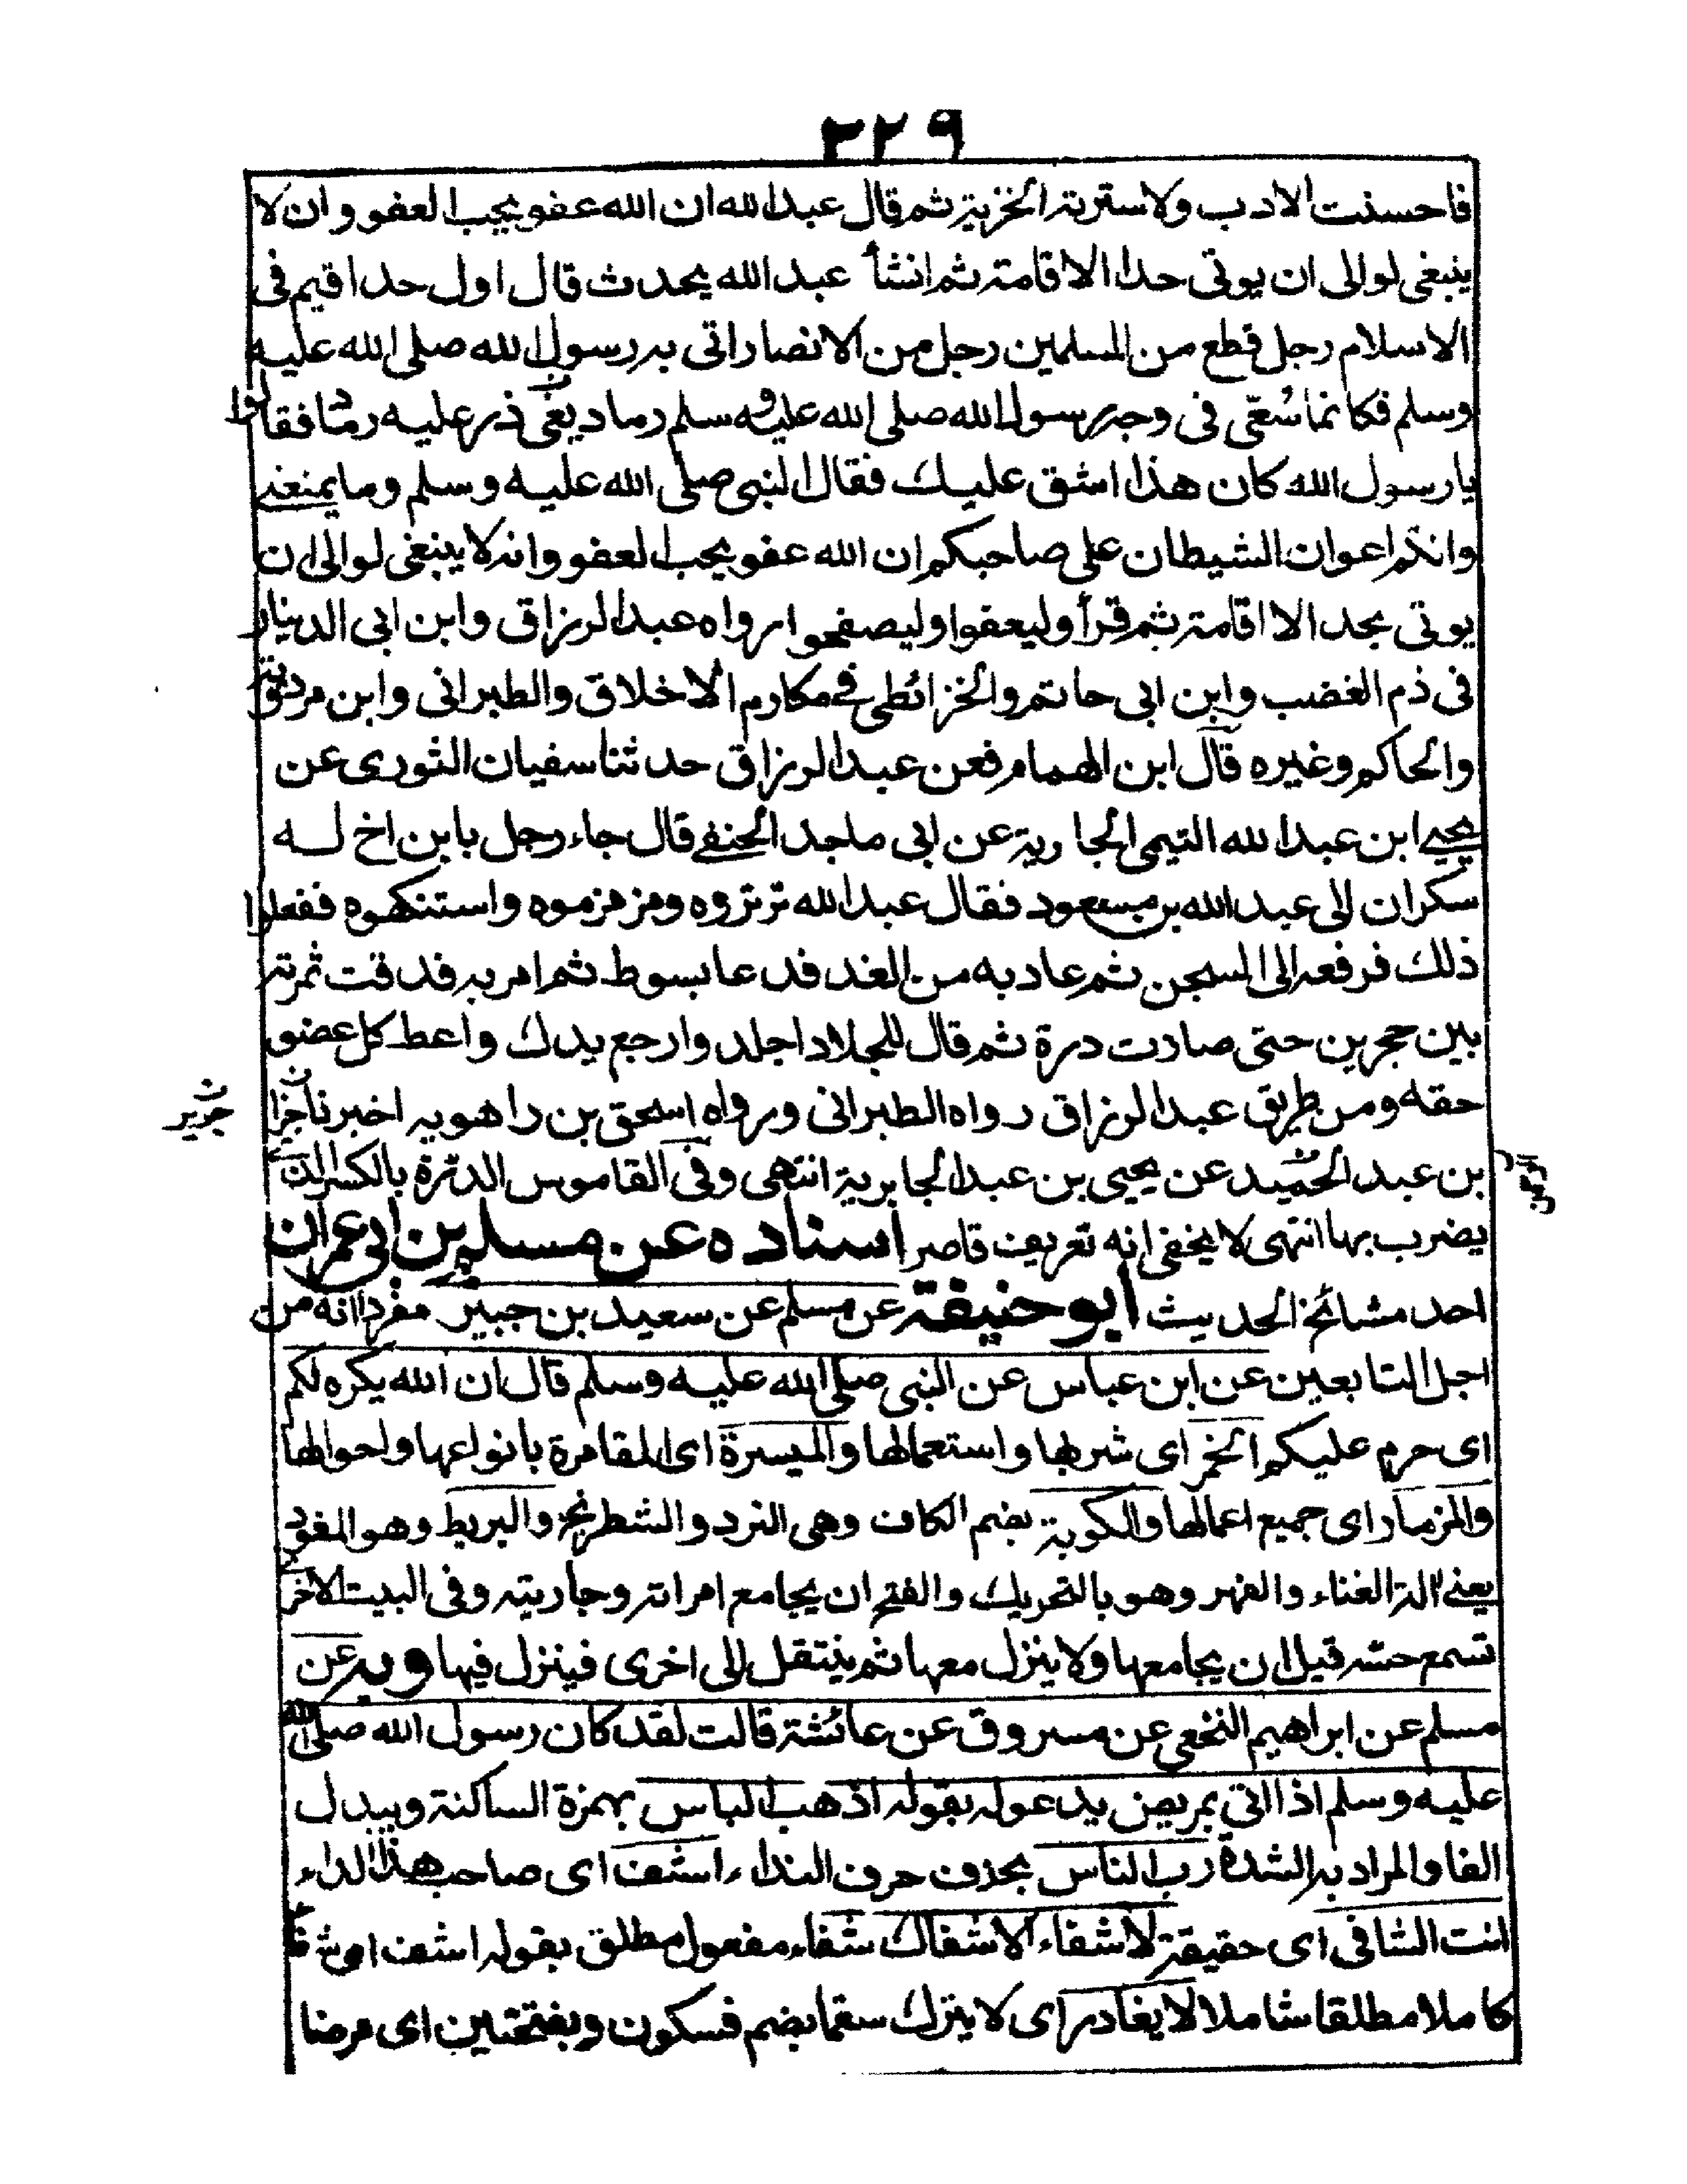 ٢٢٩
فاحسنت الادب ولاسترته الخزية ثم قال عبد الله ان الله عفو يحب العفو وان لا
ينبغى لوالى ان يوتى حدا الا اقامته ثم انشأ عبد الله يحدث قال اول حد اقيم فى
الاسلام رجل قطع من المسلمين رجل من الانصار اتى به رسول الله صلى الله عليه
وسلم فكانما سُعّى فى وجه رسول الله صلى الله عليه وسلم رماد يعنى ذر عليه رماد فقالوا
يا رسول الله كان هذا اشق عليك فقال النبى صلى الله عليه وسلم وما يمنعنى
وانتم اعوان الشيطان على صاحبكم ان الله عفو يحب العفو وانه لا ينبغى لوالى ان
يوتى بحد الا اقامته ثم قرأ وليعفوا وليصفحوا رواه عبد الرزاق وابن ابى الدنيا
فى ذم الغضب وابن ابى حاتم والخرائطى فے مكارم الاخلاق والطبرانى وابن مردويه
والحاكم وغيره قال ابن الهمام فعن عبد الرزاق حدثنا سفيان الثورى عن
يحيے ابن عبد الله التيمى الجارية عن ابى ماجد الحنفے قال جاء رجل بابن اخ له
سكران الى عبد الله بن مسعود فقال عبد الله ترتروه ومزمزموه واستنكهوه ففعلوا
ذلك فرفعه الى السجن ثم عاد به من الغد فدعا بسوط ثم امر به فدقت ثمرته
بين حجرين حتى صارت درة ثم قال للجلاد اجلد وارجع يدك واعط كل عضو
حقه ومن طريق عبد الرزاق رواه الطبرانى ورواه اسحق بن راهويه اخبرنا
جرير
بن عبد الحميد عن يحيى بن عبد الجابرية انتهى وفى القاموس الدرّة بالكسر التى
يضرب بها انتهى لا يخفى انه تعريف قاصر اسناده عن مسلم بن ابى عمران
احد مشائخ الحديث ابو حنيفة عن مسلم عن سعيد بن جبير مفردا انه من
اجل التابعين عن ابن عباس عن النبى صلى الله عليه وسلم قال ان الله يكره لكم
اى حرم عليكم الخمر اى شربها واستعمالها والميسرة اى المقامرة بانواعها واحوالها
والمزمار اى جميع اعمالها والكوبة بضم الكاف وهى النرد والشطرنج والبربط وهو العود
يعنى آلة الغناء والفهر وهو بالتحريك والفتح ان يجامع امراته وجاريته وفى البيت الاخرى
تسمع حسّه قيل ان يجامعها ولا ينزل معها ثم ينتقل الى اخرى فينزل فيها وبه عن
مسلم عن ابراهيم النخعى عن مسروق عن عائشة قالت لقد كان رسول الله صلى الله
عليه وسلم اذا اتى بمريض يدعو له بقوله اذهب الباس بهمزة الساكنة ويبدل
الفا والمراد به الشدة رب الناس بحذف حرف النداء اشف اى صاحب هذا الداء
انت الشافى اى حقيقة لا شفاء الا شفاك شفاء مفعول مطلق بقوله اشف اى شفاء
كاملا مطلقا شاملا لا يغادر اى لا يترك سقما بضم فسكون وبفتحتين اى مرضا